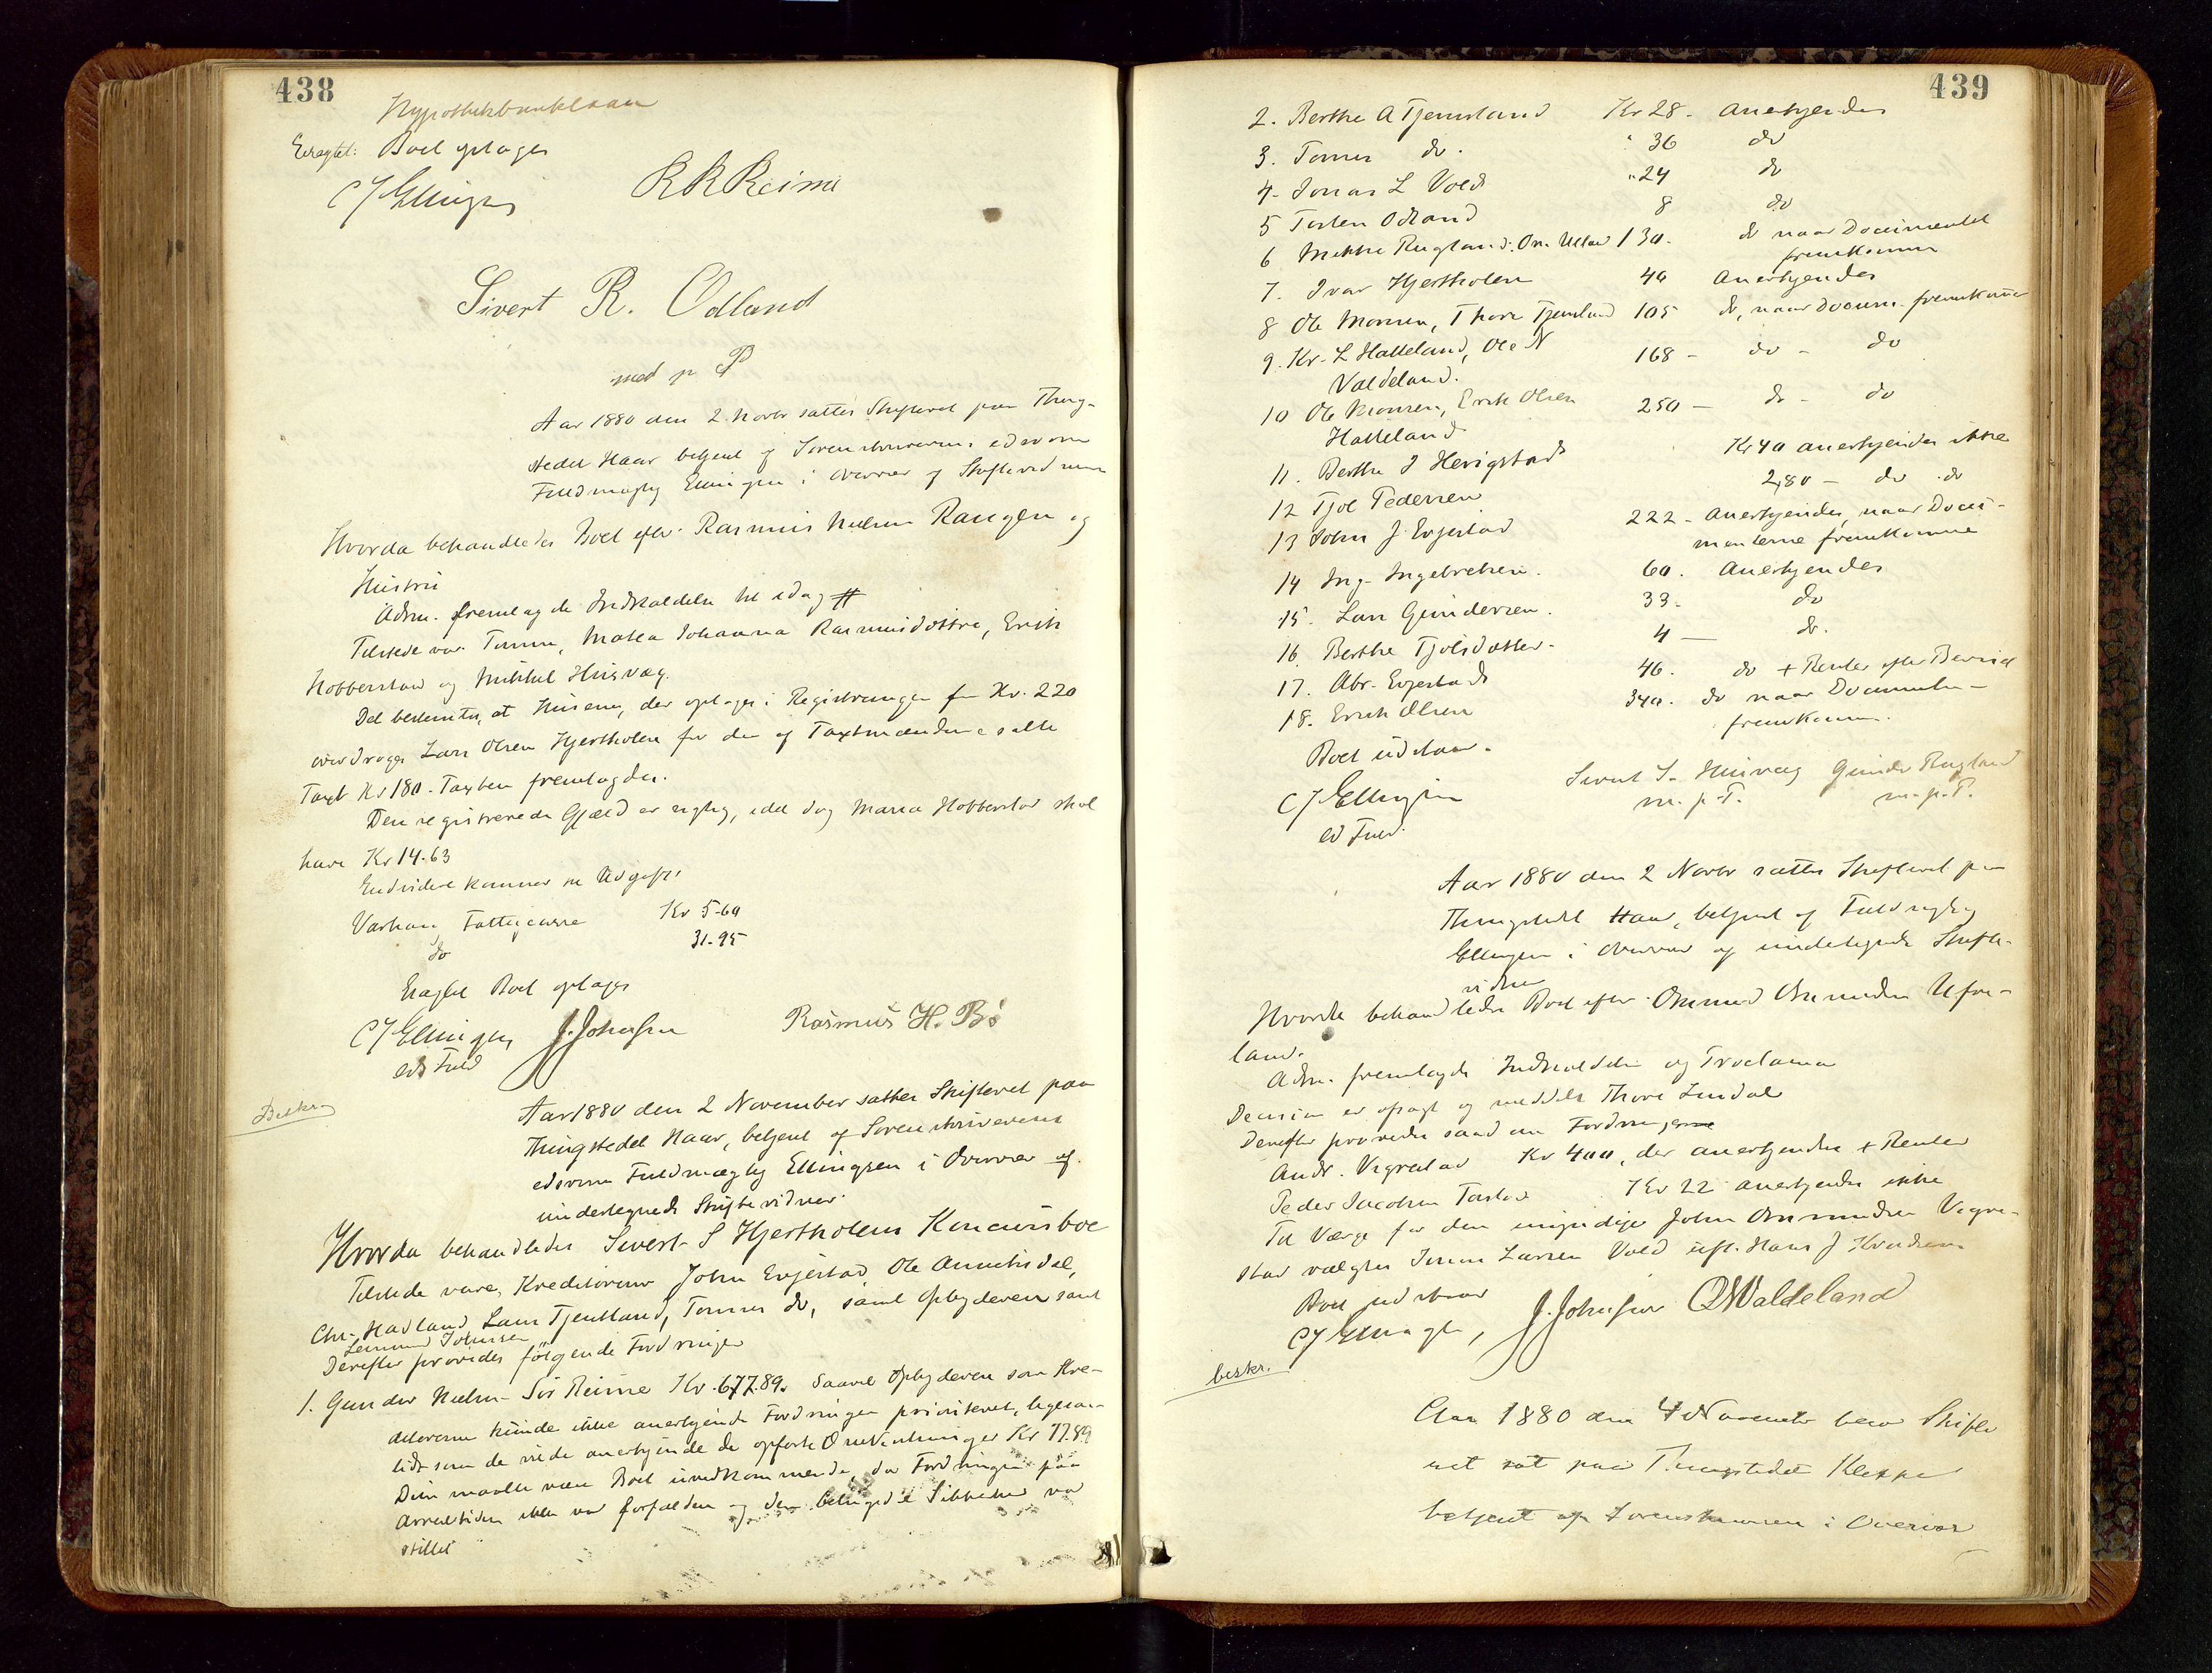 438
Hypothekbanklaan
Eragtet: Boet optages
C J Ellingsen R R Reime
Sivert R. Odland
med p P
Aar 1880 den 2 Novbr sattes Skifteret paa Thing-
stedet Haar betjent af Sorenskriverens edsvorne
Fuldmægtig Ellingsen i Overvær af Skiftevidnerne
Hvorda behandledes Boet efter Rasmus Nielsen Raugen og
Hustru
Adm. fremlagde Indkaldelse til idag #
Tilstede var Tønnes, Malea Johanna Rasmusdøttre, Erik
Hobberstad og Mikkel Husvæg.
Det bestemtes, at Husene, der optages i Registreringen for Kr. 220
overdrages Lars Olsen Hjertholen for den af Taxtmændene satte
Taxt Kr 180. Taxten fremlagdes.
Den registrerede Gjæld er rigtig, idet dog Maria Hobberstad skal
have Kr 14.63
Endvidere kommer til Udgift:
Varhaug Fattigcasse Kr 5.60
do 31.95
Eragtet Boet optages
C J Ellingsen J. Johnsen Rasmus H. Bø
eds Fuld
Beskr.
Aar 1880 den 2 November sattes Skifteret paa
Thingstedet Haar, betjent af Sorenskriverens
edsvorne Fuldmægtig Ellingsen i Overvær af
undertegnede Skiftevidner.
Hvorda behandledes Sivert S Hjertholens Koncursboe
Tilstede vare, Kreditorerne John Evjestad, Ole Aunehsdal,
Chr. Hadland, Lars Tjentland, Tønnes do, samt Opbyderen samt
Johnsen
Derefter prøvedes følgende Fordringer
1. Gunder Nielsen Sør Reime Kr. 677.89. Saavel Opbyderen som Kre-
ditorerne kunde ikke anerkjende Fordringen prioriteret, ligesaa-
lidt som de vilde anerkjende de opførte Omkostninger Kr 77.89
Disse maatte være Boet uvedkommende, da Fordringen paa
Arresttiden ikke var forfalden og den betingede Sikkerhed var
stillet
439
2. Berthe A Tjemsland Kr 28 - Anerkjendes
3. Tønnes do. " 36 do
4. Jonas L Vold " 24 do
5 Torsten Odland 8 do
6 Mikkel Rugland, On. Ueland 130. do naar Documentet
fremkommer
7. Ivar Hjertholen 40 Anerkjendes
8 Ole Monsen, Thore Tjemsland 105 do, naar Docum. fremkommer
9. Kr. L Hatteland, Ole N 168 - do - do
Valdeland.
10 Ole Monsen, Erik Olsen 250 - do - do
Hatteland
11. Berthe J Herigstad Kr 40 anerkjendes ikke
12 Tjol Pedersen 2,80 - do do
13 John J Evjestad 222 - Anerkjendes, naar Docu-
menterne fremkomme
14 Ing. Ingebretsen. 60. Anerkjendes
15. Lars Gundersen. 33. do
16. Berthe Tjolsdatter. 4 - do.
17. Abr. Evjestad 46. do + Renter efter Beviset
18. Erik Olsen 340. do naar Documentet
fremkommer.
Boet udstaar.
C J Ellingsen Sivert S. Husvæg Gunder Rugland
ed Fuld. m. p. P. m. p. P.
Aar 1880 den 2 Novbr sattes Skifteret paa
Thingstedet Haar, betjent af Fuldmægtig
Ellingsen i Overvær af undertegnede Skifte-
vidner
Hvorda behandledes Boet efter Osmund Osmundsen Ufse-
land.
Adm. fremlagde Indkaldelse og Proclama
Decision er afsagt og meddelt Thore Lendal
Derefter prøvedes saadanne Fordringer
Andr. Vigrestad Kr 400, der anerkjendes + Renter
Peder Jacobsen Torland Kr 22 anerkjendes ikke
Til Værge for den umyndige John Osmundsen Vigre-
stad valgtes Jonas Larsen Vold istf. Hans J Knudsen.
Boet udstaar
C J Ellingsen, J. Johnsen O N Valdeland
beskr.
Aar 1880 den 4 November blev Skifte
ret sat paa Thingstedet Kleppe
betjent af Sorenskriveren i Overvær